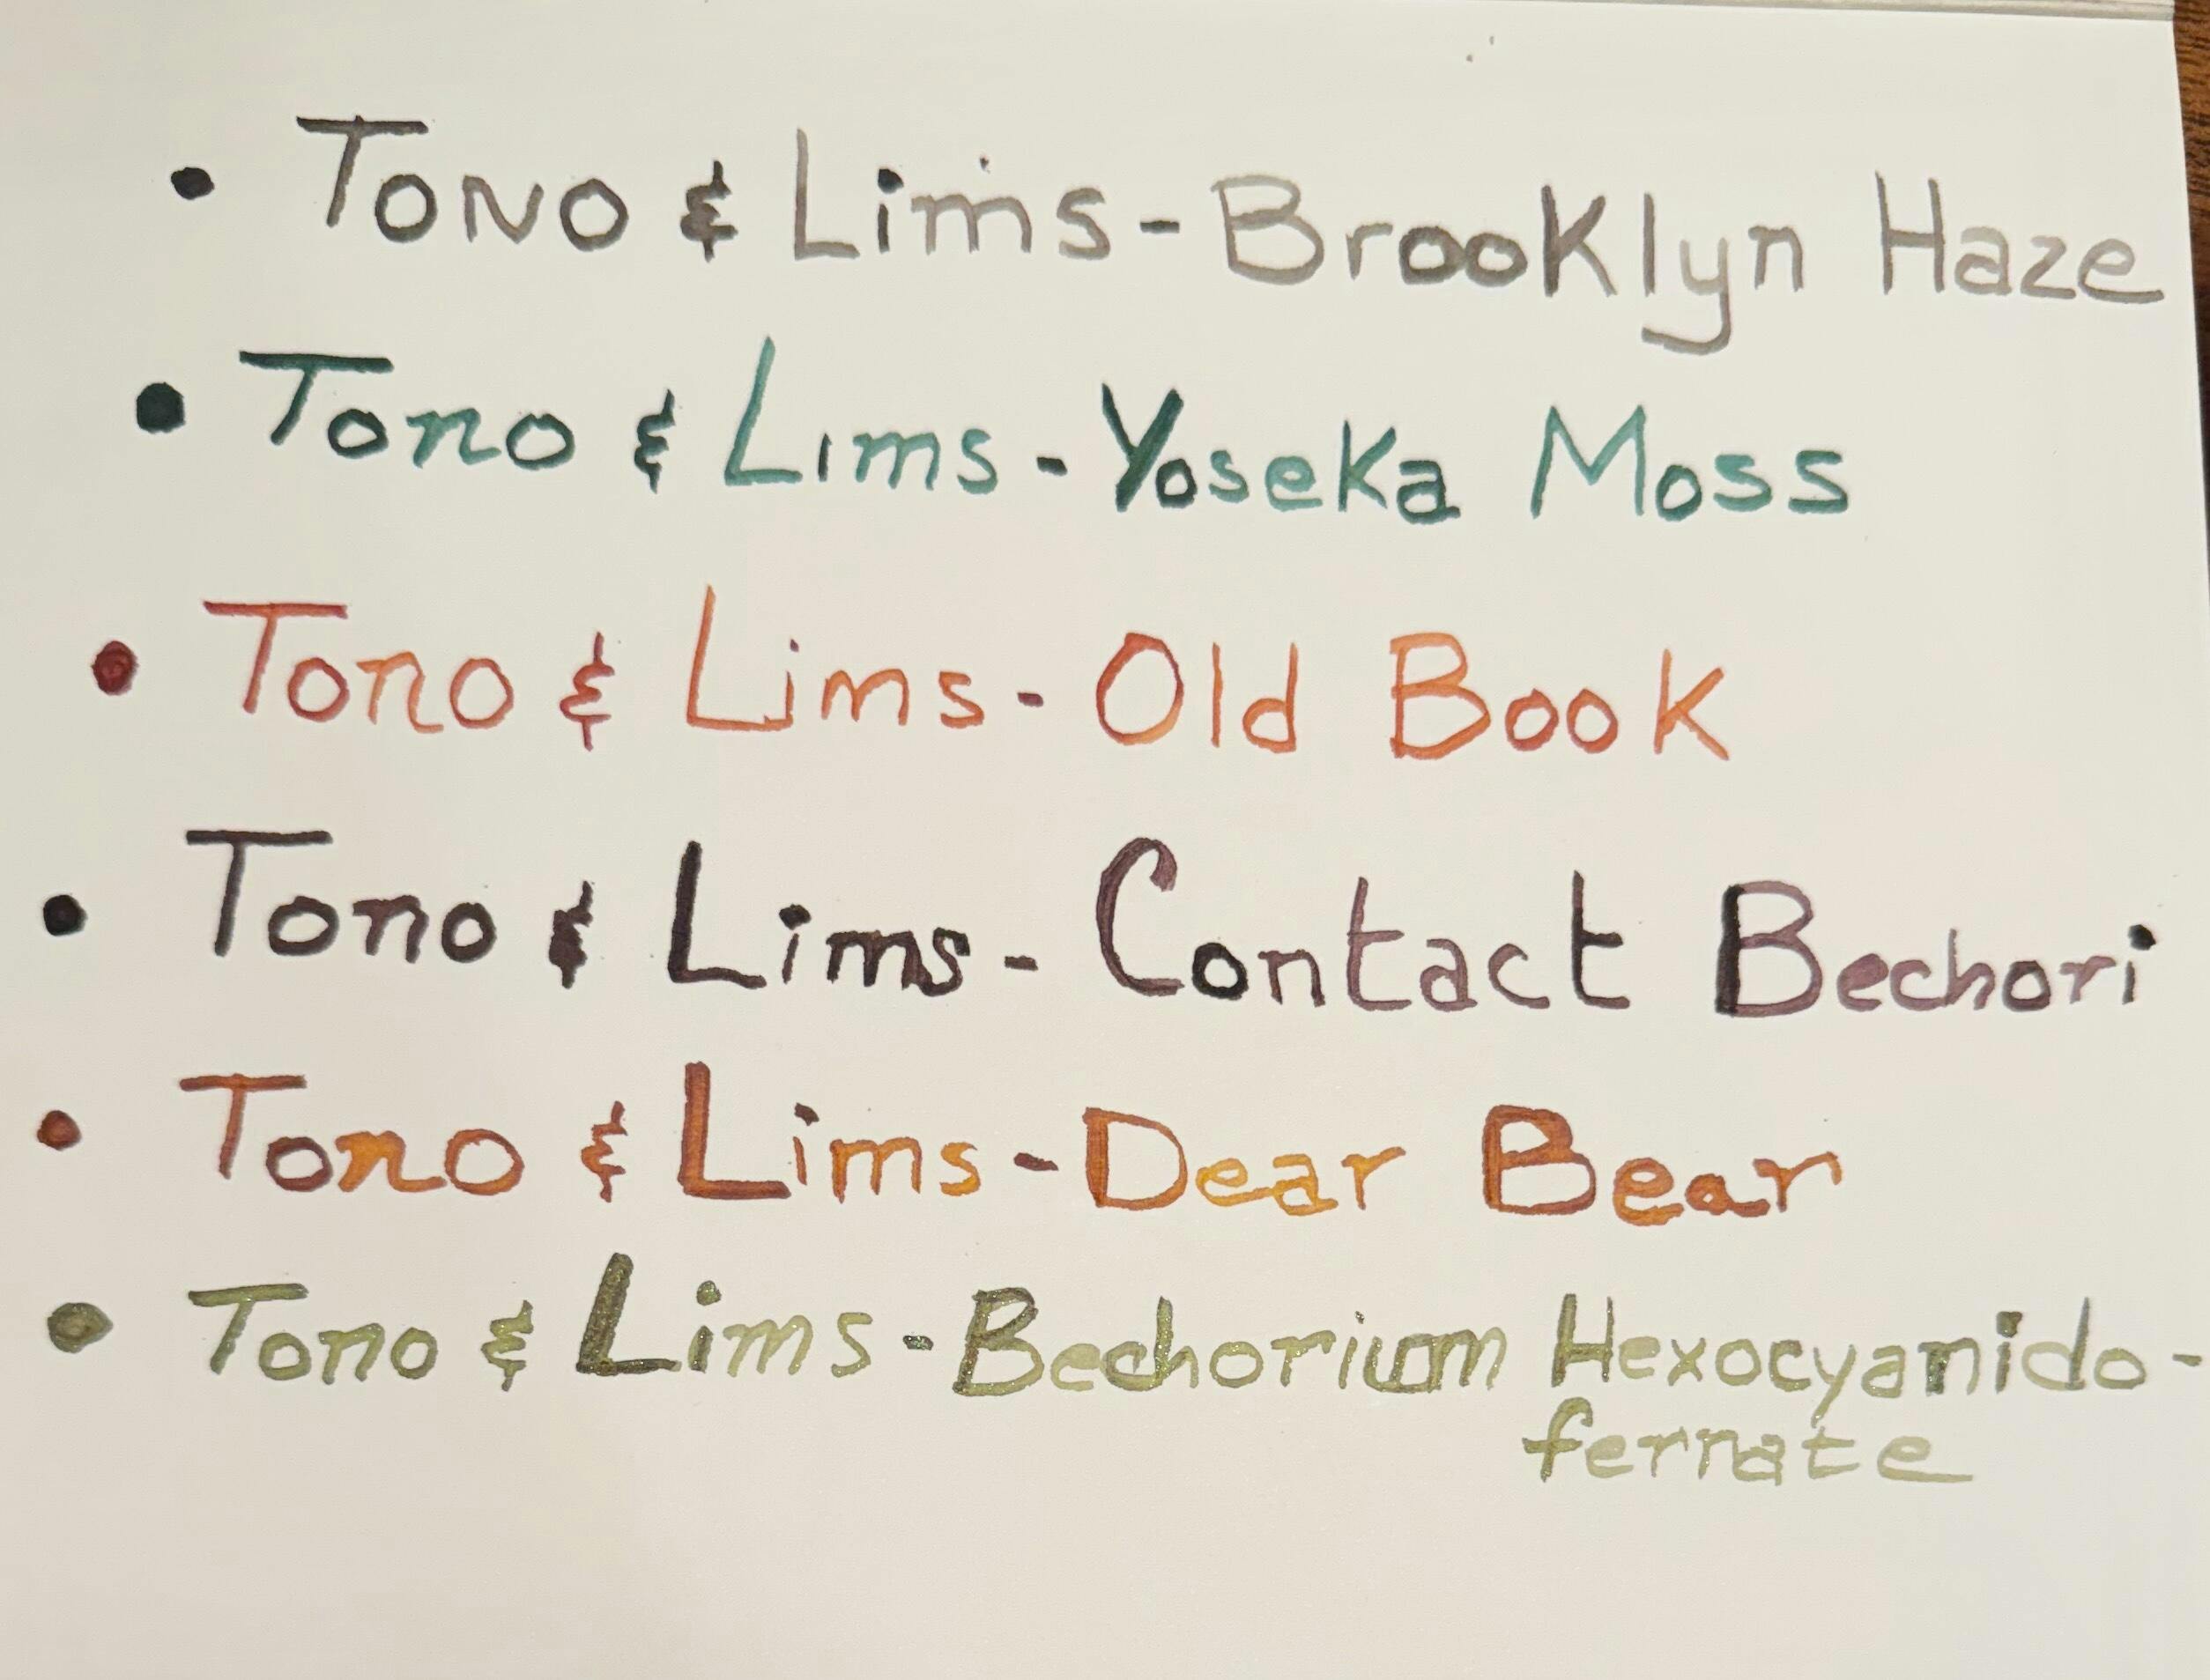 • Tono & Lims - Brooklyn Haze
• Tono & Lims - Yoseka Moss
• Tono & Lims - Old Book
• Tono & Lims - Contact Bechori
• Tono & Lims - Dear Bear
• Tono & Lims - Bechorium Hexocyanido-
ferrate